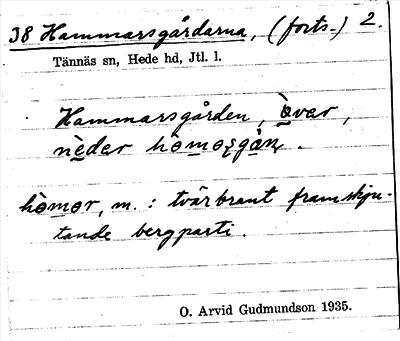 38 Hammarsgårdarna, (forts.) 2.
Tännäs sn, Hede hd, Jtl. l.
Hammarsgården, òvar,
nèdar
hòmor, m. : tvärbrant framskju-
tande bergparti.
O. Arvid Gudmundson 1935.